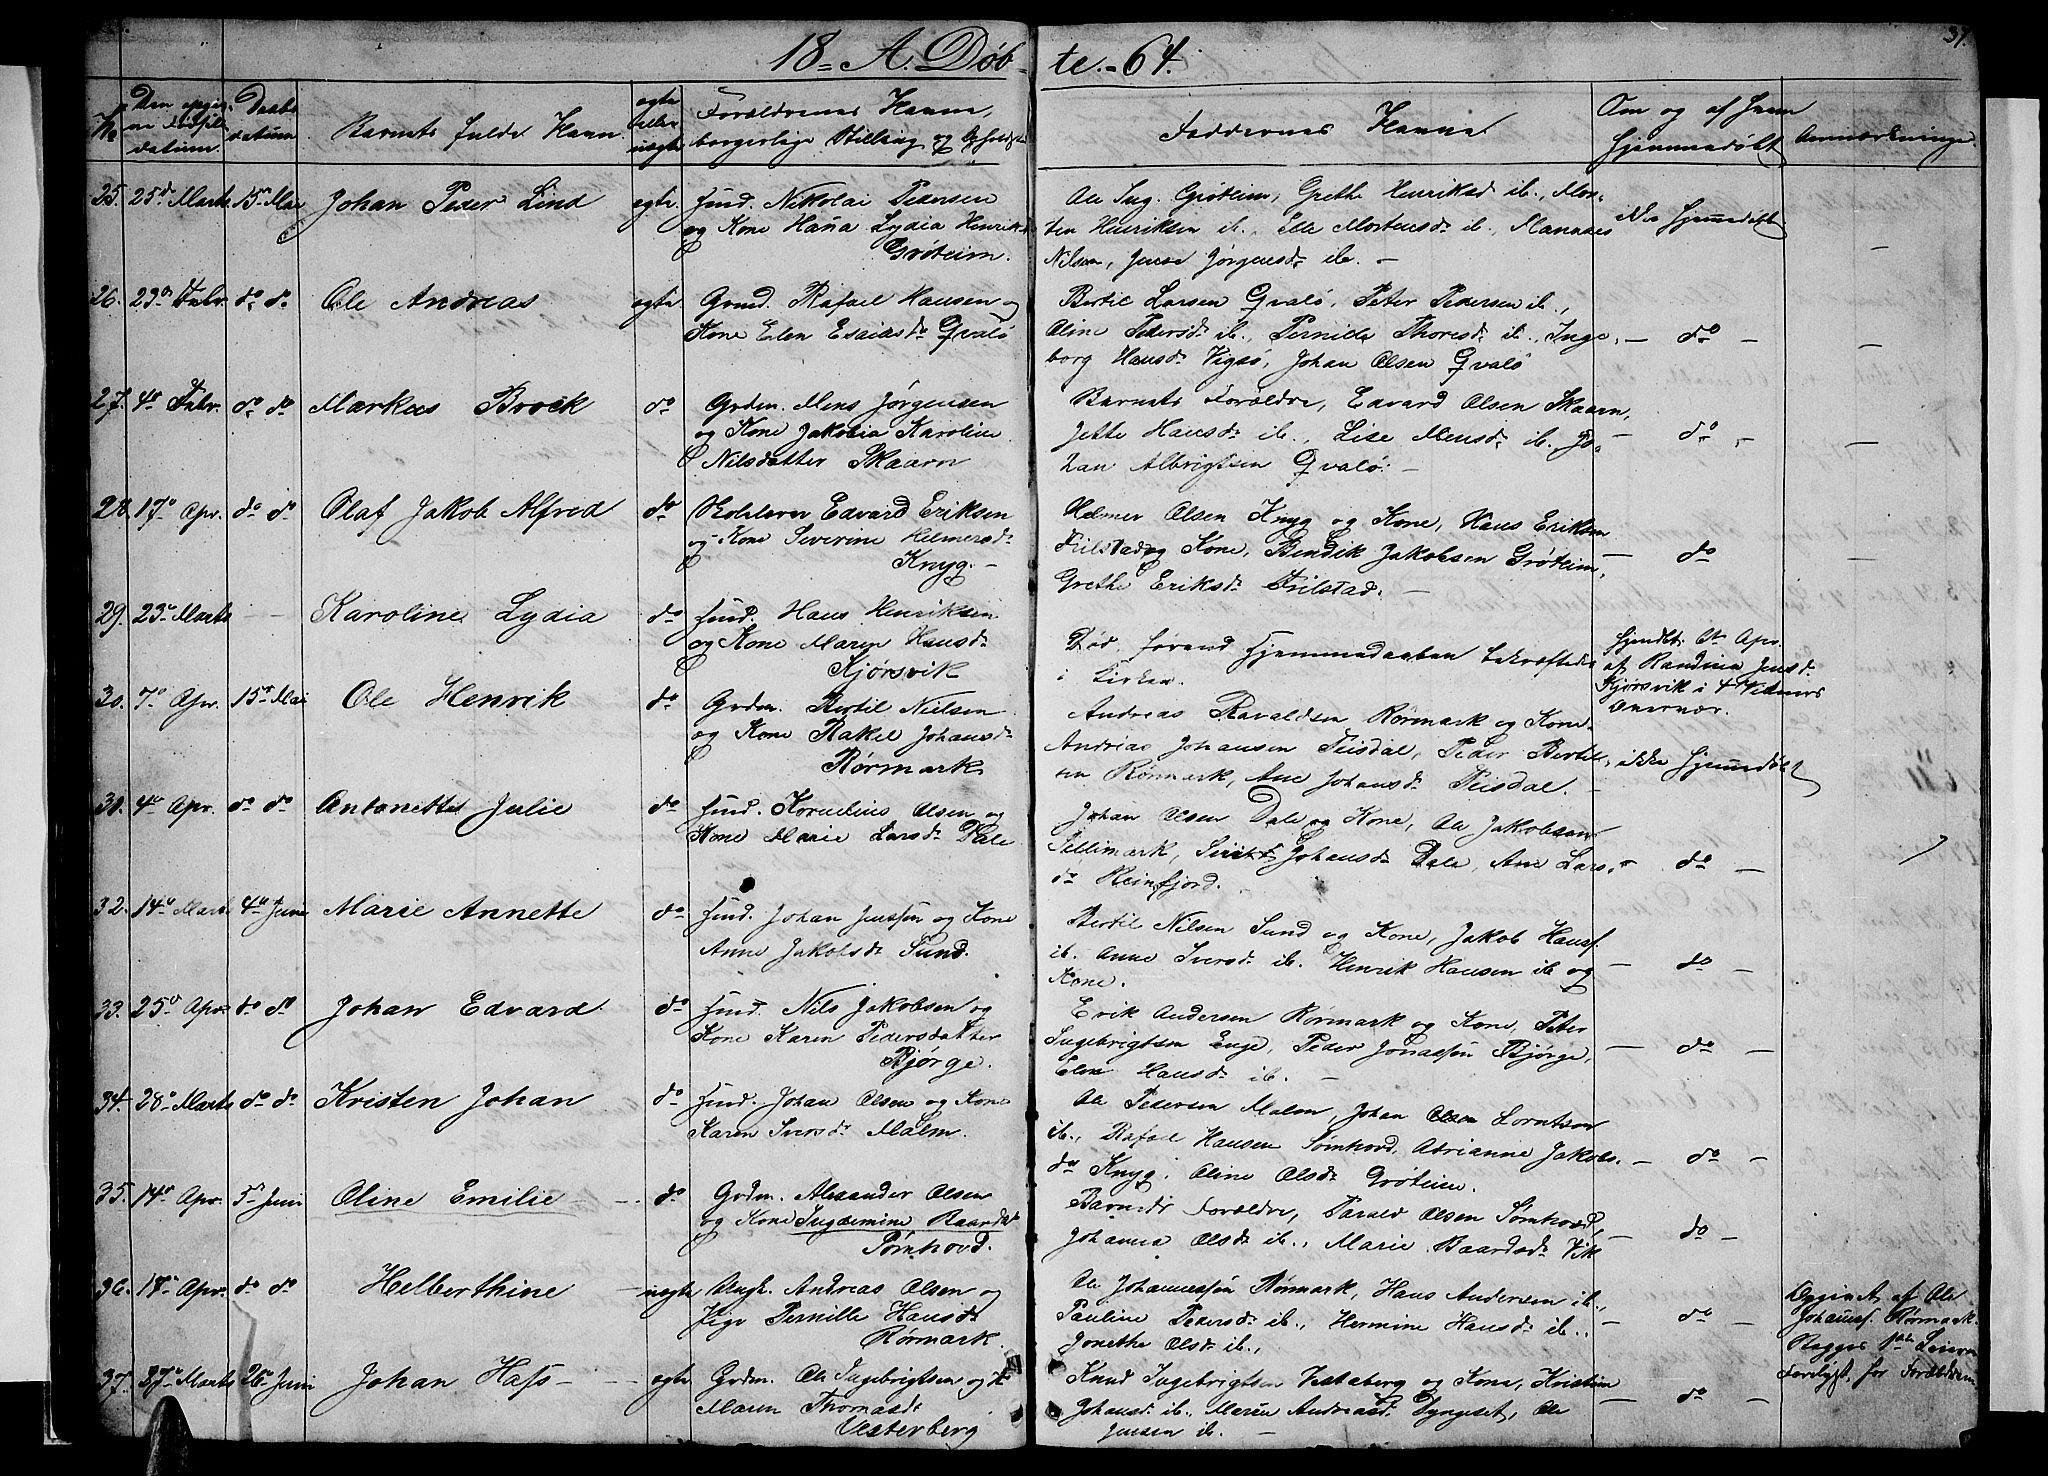 37.
18 = A. Døb- te. = 64.
No
Den opgiv-
ne Fødsels
datum.
Daabs
datum
Barnets fulde Navn
ægte
eller
uægte
Forældrenes Navne,
borgerlige Stilling og Opholds
Faddernes Navne
Om og af hvem
hjemmedøbt
Anmærkninger
25. 25de Marts 15de Mai Johan Peder Lind ægte. Huusd. Nikolai Pedersen
og Kone Hana Lydia Henriksd
Grøteim.
Ole Ing. Grøteim, Grethe Henriksd ib., Mor-
ten Henriksen ib., Elle Mortensdr ib., Mannes
Nilsen, Jensd Jørgensdr ib. —
ikke hjemmedøbt
—
26. 23de Febr. do do Ole Andreas ægte Grmd. Rafael Hansen og
Kone Elen Esaiasdr Qvalø
Bertil Larsen Qvalø, Peter Pedersen ib.,
Oline Pedersdr ib., Pernille Thoresdr ib., Inge-
borg Hansdr Vigsø, Johan Olsen Qvalø
— do —
—
27. 4de Febr. do do Markus Brock do Grdm. Mons Jørgensen
og Kone Jakobia Karoline
Nilsdatter Skaarn
Barnets Forældre, Edvard Olsen Skaarn,
Jette Hansdr ib., Lise Monsdr ib. Jo-
han Albrigtsen Qvalø. —
— do —
—
28. 17de Apr. do do Olaf Jakob Alfred do Edvard Eriksen
og Kone Severine Helmersdr
Knyg. —
Helmer Olsen Knyg og Kone, Hans Eriksen
Frilstad og Kone, Bendik Jakobsen Grøteim,
Grethe Eriksdr Frilstad. —
— do
—
29. 23de Marts — Karoline Lydia do Huusd. Hans Henriksen
og Kone Maren Hansdr
Kjørsvik
Død forend Hjemmedaaben bekræftedes
i Kirken.
Hjemdbt. Apr.
af Randina Jensdr
Kjørsvik i 4 Vidners
Overvær.
30. 7de Apr. 15de Mai Ole Henrik do Grdm. Bertil Nielsen
og Kone Rakel Johansdr
Rørmark
Andreas Rørmark og Kone
Andreas Johansen Teisdal, Peder Bertel-
sen Rørmark, Ane Johansdr Teisdal. —
ikke hjemmedøbt
31. 4de Apr. do do Antonette Julie do Huusd. Kornelius Olsen og
Kone Marie Larsdr Dale
Johan Olsen Dale og Kone, Ole Jakobsen
Tellimark, Johansdr Dale, Ane Lars-
dr Reinfjord.
— do —
32. 14de Marts 4de Juni Marie Annette do Huusd. Johan Jenssen og Kone
Anne Jakobsdr Sund.
Bertil Nilsen Sund og Kone, Jakob Hansf.
ib. Anne Iversdr ib. Henrik Hansen ib og
Kone.
— do —
33. 25de Apr. do do Johan Edvard do Huusd. Nils Jakobsen og
Kone Karen Pedersdatter
Bjørge.
Erik Andersen Rørmark og Kone, Peter
Ingebrigtsen Enge, Peder Jonassen Bjørge,
Elen Hansdr ib. —
— do —
34. 28de Marts do do Kristen Johan do Huusd. Johan Olsen og Kone
Karen Iversdr Malm.
Ole Pedersen Malm, Johan Olsen Lorntsen
ib., Rafael Hansen Sømhovd, Adrianne Jakobs-
dr Knyg, Oline Olsdr Grøteim.
— do —
35. 14de Apr. 5te Juni Oline Emilie — do Grdm. Alexander Olsen
og Kone Ingeemine Baardsdr
Sømhovd.
Barnets Forældre, Olsen Sømhovd,
Johanna Olsdr ib., Marie Baardsdr Vik
— do —
36. 17de Apr. do do Helberthine — uægte Ungk. Andreas Olsen og
Pige Pernille Hansdr
Rørmark.
Ole Johannessen Rørmark, Hans Andersen ib.,
Pauline Pedersdr ib., Hermine Hansdr ib.,
Jonethe Olsdr ib.,
— do —
Opgivet af Ole
Johannsf. Rørmark.
Begges 1ste Leierm.
Forlygt. for Forældrene
37. 27de Marts 26de Juni Johan Hass — ægte Grdm. Ole Ingebrigtsen og K.
Maren Thomasdr
Vesterberg
Knud Ingebrigtsen Vesterberg og Kone, Kristine
Johansdr ib., Maren Andreasdr Dyngeset, Ole
Jensen ib. —
— do —